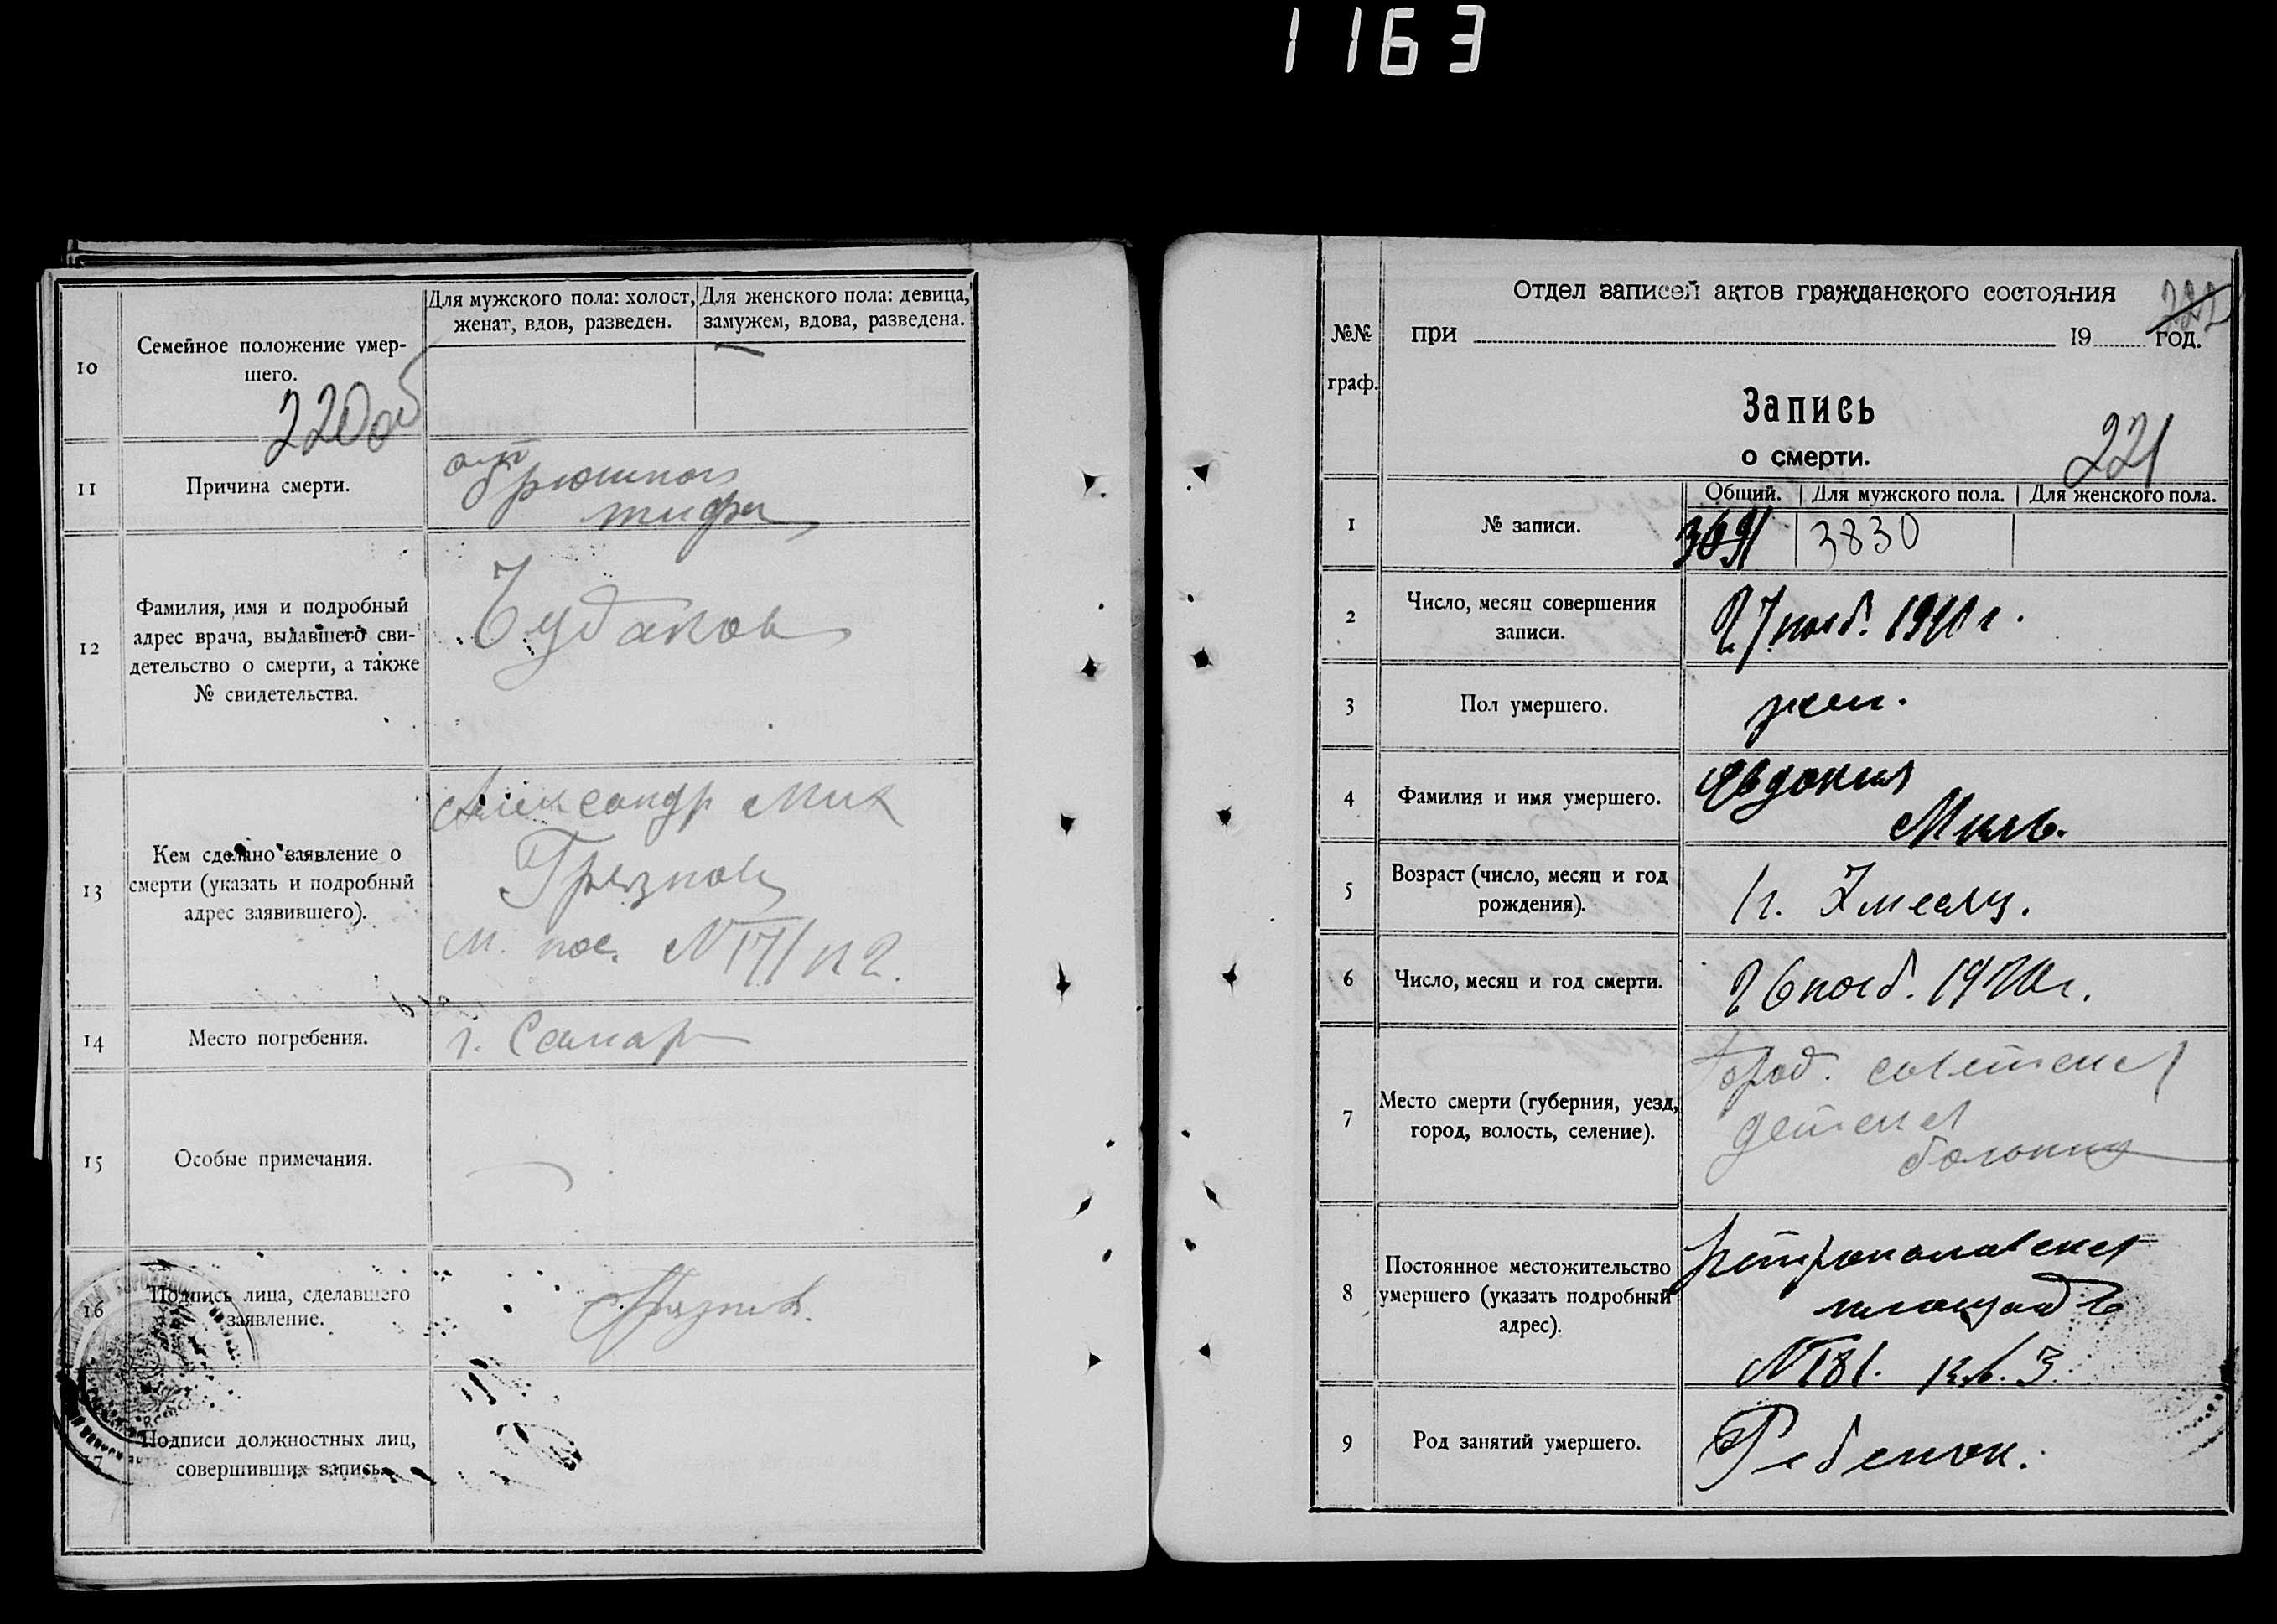 1163
10
Семейное положение умер-
шего.
Для мужского пола: холост,
женат, вдов, разведен.
Для женского пола: девица,
замужем, вдова, разведена.
220 об
11
Причина смерти.
от
брюшного
тифа
12
Фамилия, имя и подробный
адрес врача, выдавшего сви-
детельство о смерти, а также
№ свидетельства.
Чудаков
13
Кем сделано заявление о
смерти (указать и подробный
адрес заявившего).
Александр Мих
Грязнов
14
Место погребения.
г. Самар
15
Особые примечания.
16
Подпись лица, сделавшего
заявление.
Грязнов.
17
Подписи должностных лиц,
совершивших запись.
№№
граф.
Отдел записей актов гражданского состояния
при 19 год.
222
Запись
о смерти.
221
Общий. Для мужского пола. Для женского пола.
1
№ записи.
3691 3830
2
Число, месяц совершения
записи.
27 нояб. 1920 г.
3
Пол умершего.
жен.
4
Фамилия и имя умершего.
Евдокия
5
Возраст (число, месяц и год
рождения).
1 г. 7 месяц.
6
Число, месяц и год смерти.
26 нояб. 1920 г.
7
Место смерти (губерния, уезд,
город, волость, селение).
Город. советская
детская
больница
8
Постоянное местожительство
умершего (указать подробный
адрес).
петропавловская
площадь
№ 181. кв. 3
9
Род занятий умершего.
Ребенок.